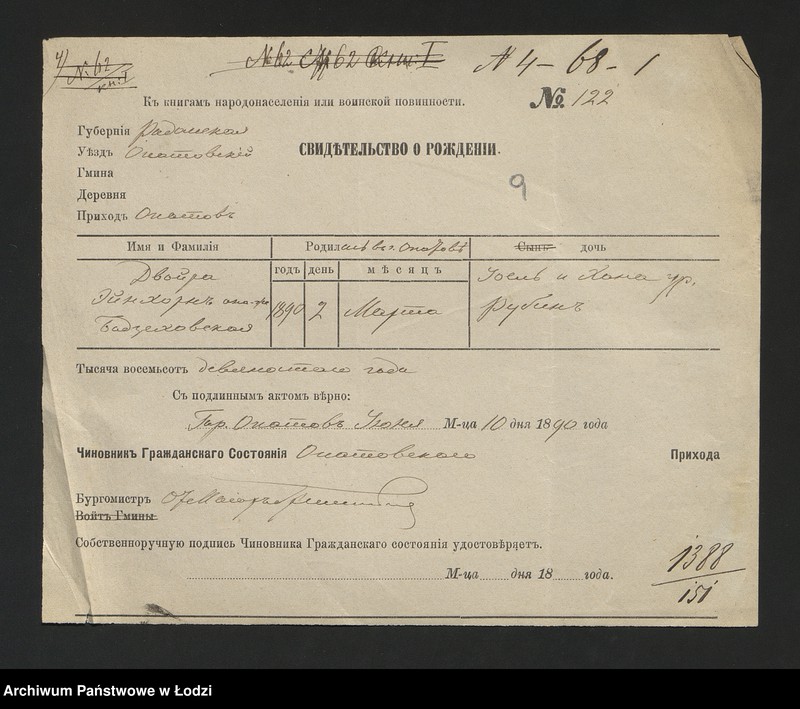 № 62
№ 62 стр 62 I
N 4 - 68 - 1
Къ книгамъ народонаселенія или воинской повинности.
№ 122
Губернія Радомская
Уѣздъ Опатовскій
СВИДѢТЕЛЬСТВО О РОЖДЕНІИ.
Гмина
9
Деревня
Приходъ Опатовъ
Имя и Фамилія
Родилась въ г. Опатовѣ
Сынъ дочь
годъ
день
мѣсяцъ
Двойра
Эйнхорнъ
1890
2
Марта
Іоель и Хана ур.
Рубинъ
Тысяча восемьсотъ девяностаго года
Съ подлиннымъ актомъ вѣрно:
Гор. Опатовъ Іюня М-ца 10 дня 1890 года
Чиновникъ Гражданскаго Состоянія Опатовскаго Прихода
Бургомистръ
Войтъ Гмины
Собственноручную подпись Чиновника Гражданскаго состоянія удостовѣряетъ.
М-ца дня 18 года.
1388
151
Archiwum Państwowe w Łodzi